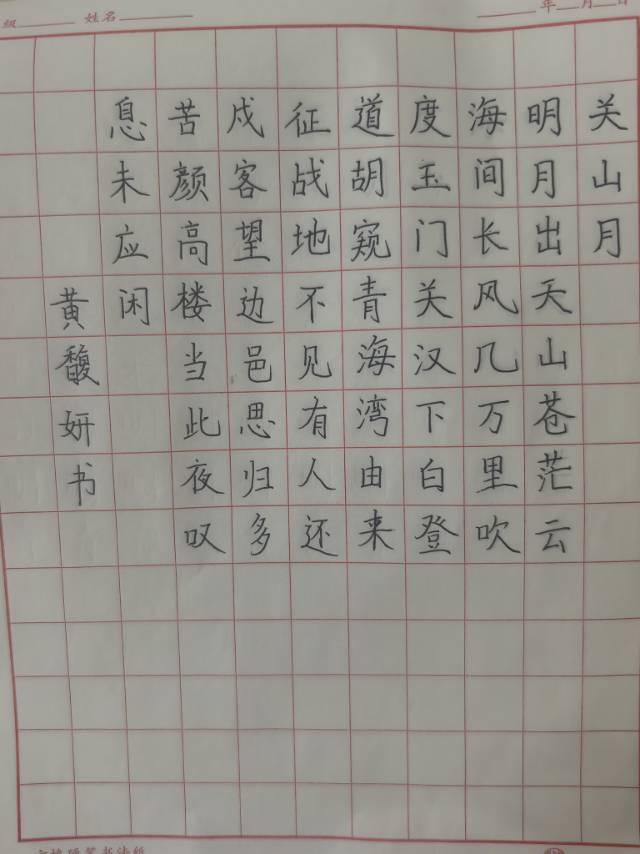 级 姓名 年 月 日
关山月
明月出天山苍茫云
海间长风几万里吹
度玉门关汉下白登
道胡窥青海湾由来
征战地不见有人还
戍客望边邑思归多
苦颜高楼当此夜叹
息未应闲
黄馥妍书